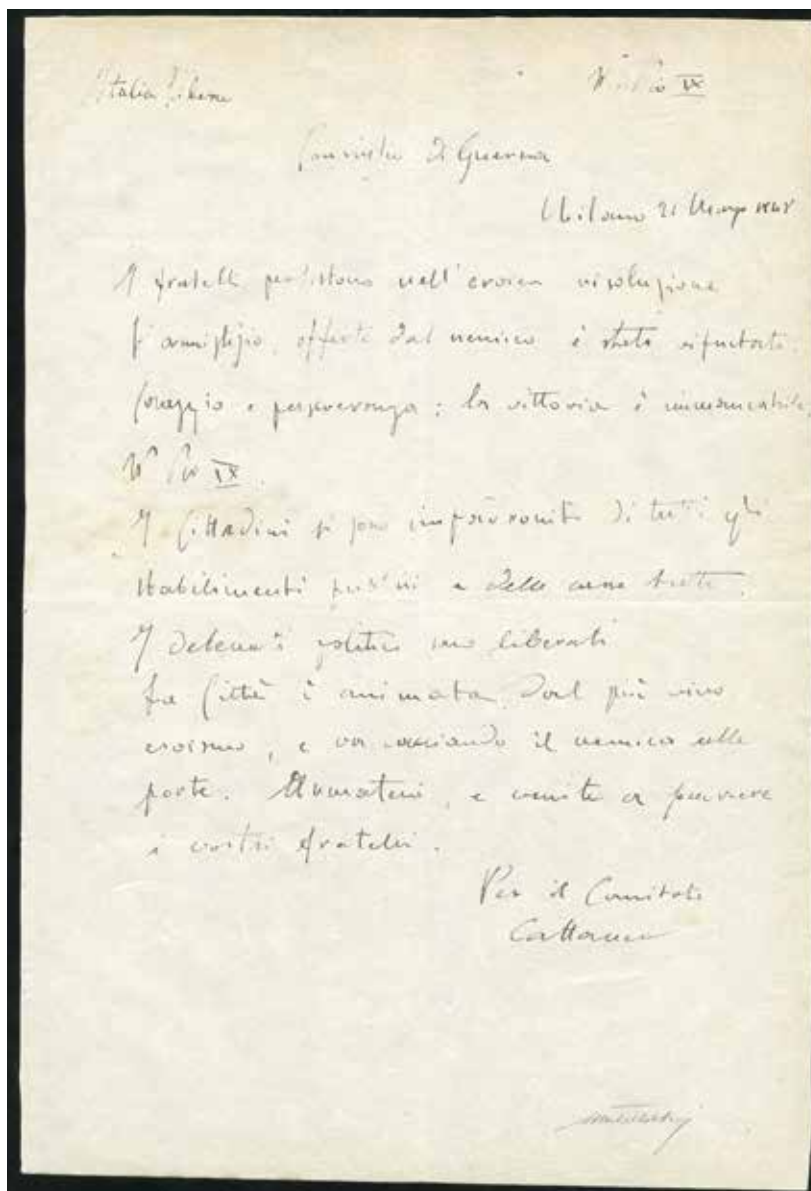 Italia libera
W Pio IX
Consiglio di Guerra
Milano 21 Marzo 1848
I fratelli persistono nell'eroica risoluzione
L'armistizio, offerto dal nemico è stato rifiutato.
Coraggio e perseveranza; la vittoria è immancabile,
W Pio IX.
I Cittadini si sono impadroniti di tutti gli
stabilimenti e delle
I detenuti politici sono liberati
La Città è animata dal più vivo
eroismo, e va cacciando il nemico alle
porte. Armatevi, e venite a
i vostri fratelli.
Per il Comitato
Cattaneo